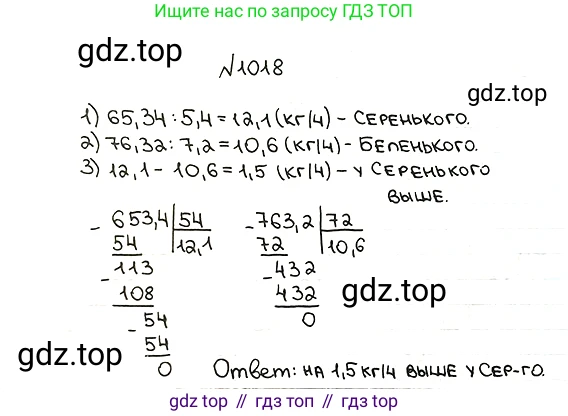 Ищите нас по запросу ГДЗ ТОП
gdz.top
№1018
gdz.top
1) 65,34 : 5,4 = 12,1 (кг/ч) - СЕРЕНЬКОГО.
2) 76,32 : 7,2 = 10,6 (кг/ч) - БЕЛЕНЬКОГО.
3) 12,1 - 10,6 = 1,5 (кг/ч) - У СЕРЕНЬКОГО
ВЫШЕ.
- 653,4 | 54 - 763,2 | 72
54 12,1 72 10,6
- 113 - 432
108 432
- 54 0
54
0
gdz.top
gdz.top
Ответ: НА 1,5 кг/ч ВЫШЕ У СЕР-ГО.
gdz.top // гдз.топ // gdz.top // гдз.топ